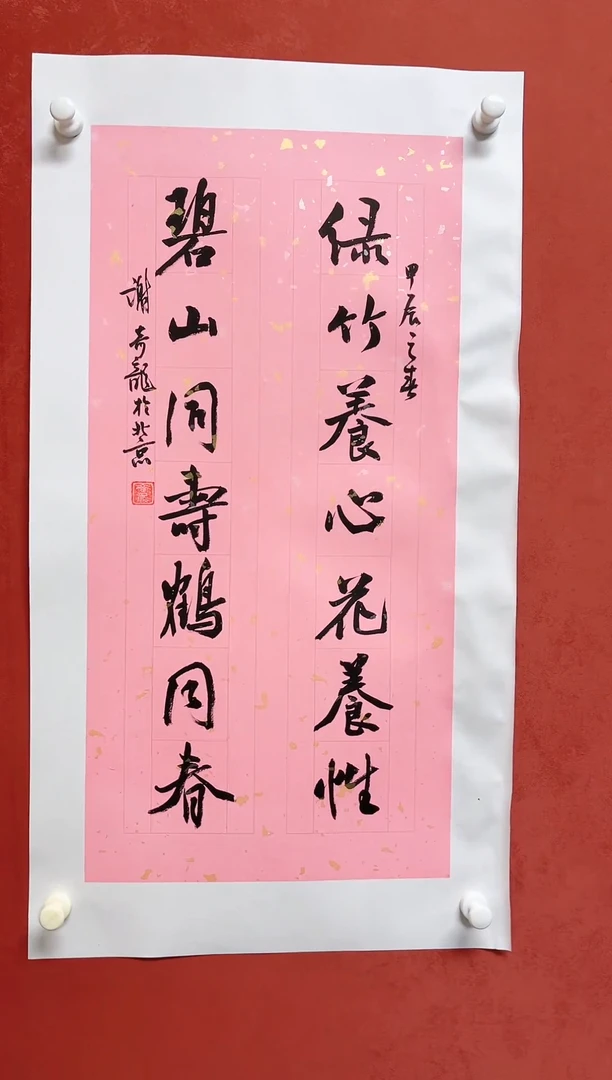 甲辰之春
绿竹養心花養性
碧山同壽鶴同春
謝奇龍於北京